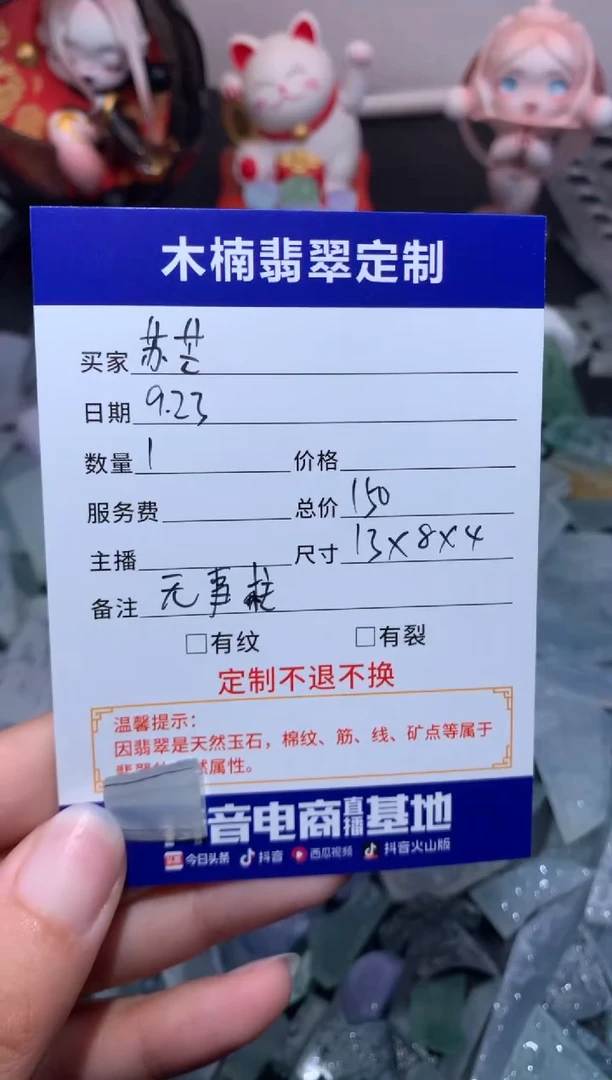 木楠翡翠定制
买家 苏芸
日期 9.23
数量 1 价格
服务费 总价 150
主播 尺寸 13×8×4
备注 无事桩
□有纹 □有裂
定制不退不换
温馨提示：
因翡翠是天然玉石，棉纹、筋、线、矿点等属于
然属性。
音电商直播基地
今日头条 抖音 西瓜视频 抖音火山版